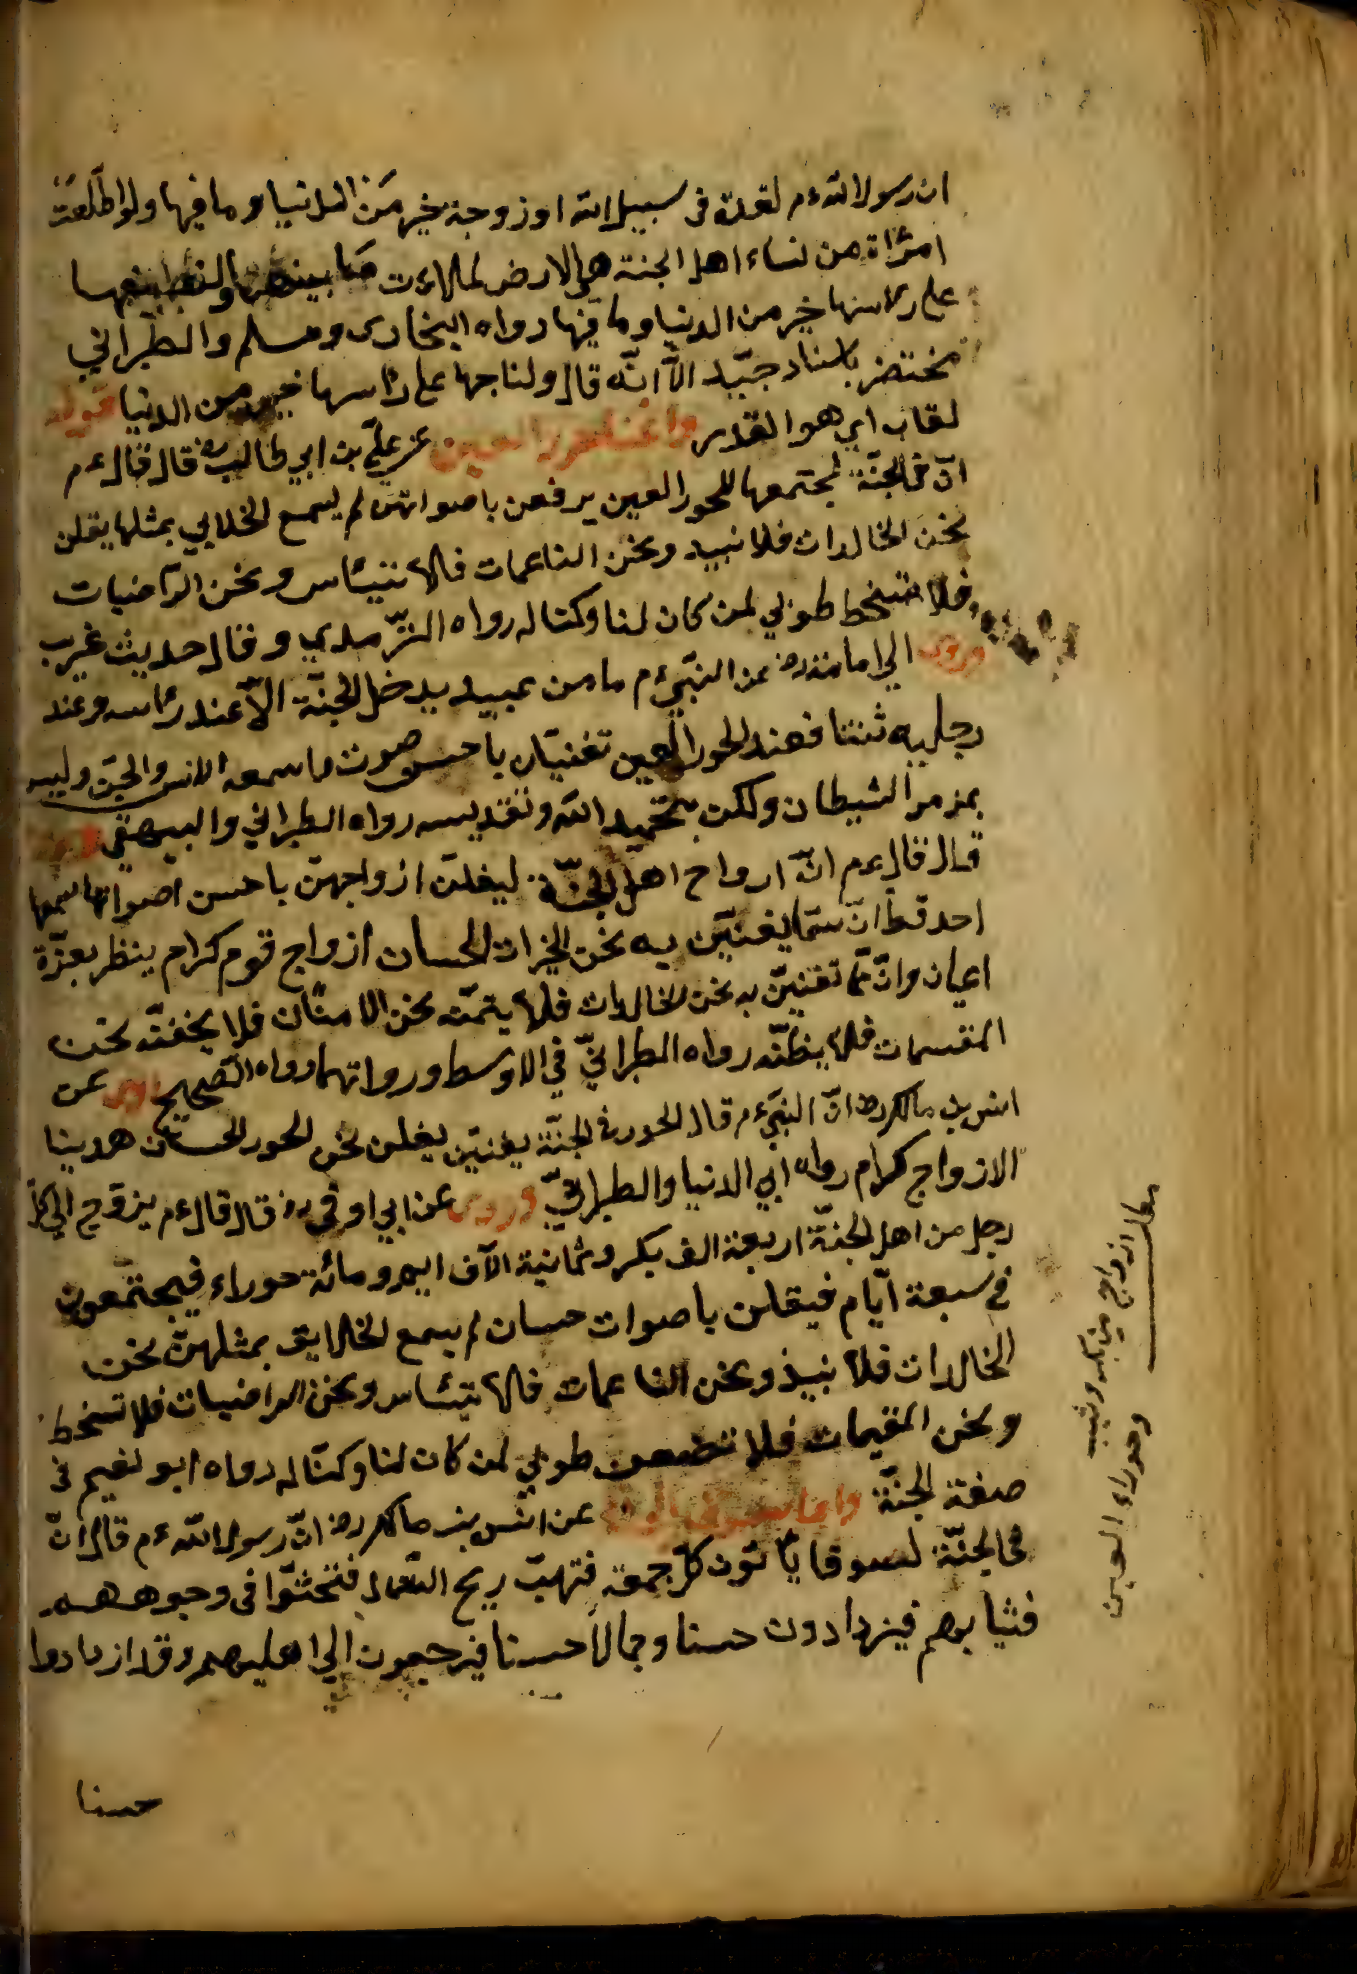 ان رسول الله ءم لغدوة فى سبيل الله او زوجة خير من الدنيا وما فيها ولو اطّلعت
امرئاة من نساء اهل الجنة على الارض لملاءت ما بينهما
على راسها خير من الدنيا وما فيها رواه البخارى ومسلم والطبراني
مختصر باسناد جيّد الاّ انّه قال ولتاجها على رأسها خير من الدنيا قوله
لقاب اي هو القدر واغناء حور العين عن علي بن ابي طالب رض قال قال ءم
انّ فى الجنّة لمجتمعها للحور العين يرفعن باصواتهن لم يسمع الخلايق بمثلها يقلن
نحن الخالدات فلا نبيد ونحن الناعمات فلا نتبئاس ونحن الراضيات
فلا نسخط طوبي لمن كان لنا وكنا له رواه الترّمدي وقال حديث غريب
وروى ابي امامة رض عن النبي ءم ما من عبيد يدخل الجنّة الاّ عند رئاسه وعند
رجليه ثنتا فعند الحور العين تغنيّان باحسن صوت ما سمعه الانس والجنّ وليس
بمزمر الشيطان ولكن بتحميد الله وتقديسه رواه الطبراني والبيهقي
قال قال ءم انّ ارواح اهل الجنّة ليغلن ازواجهنّ باحسن اصواتها سمعها
احد قط انّ ممّا يغنيّن به نحن الخيرات الحسان ازواج قوم كرام ينظر بعزّة
اعيان وانّ ممّا تغنيّن به نحن الخالدات فلا يتمته نحن الامنّان فلا يخفنّه نحن
المقسمات فلا يظنّه رواه الطبراني في الاوسط ورواتهما رواه الصّحيح وروى عن
انس بن مالك رض انّ النبي ءم قال الحور فى الجنّة يغنيّن يغلن نحن الحور الحسان هدينا
الازواج كرام رواه ابي الدنيا والطبراني وروى عن ابي اوفى رض قال قال ءم يزوّج الي كلّ
رجل من اهل الجنّة اربعة الف بكر وثمانية الآف ايم ومائة حوراء فيجتمعون
في سبعة ايّام فيقلن باصوات حسان لم يسمع الخلايق بمثلهنّ نحن
الخالدات فلا نبيذ ونحن الناعمات فلا نتبئاس ونحن الراضيات فلا تسخط
ونحن المقيمات فلا نظعن طوبي لمن كان لنا وكنّا له رواه ابو نعيم فى
صفة الجنّة واما سوق الجنّة عن انس بن مالك رض انّ رسول الله ءم قال انّ
فى الجنّة لسوقا يأتون كلّ جمعة فتهبّ ريح الشمال فتحثوا فى وجوههم
فثيابهم فيزدادون حسنا وجمالا حسنا فيرجعون الي اهليهم وقد ازدادوا
حسنا
ازواج من بكر وثيب
وحوراء العين